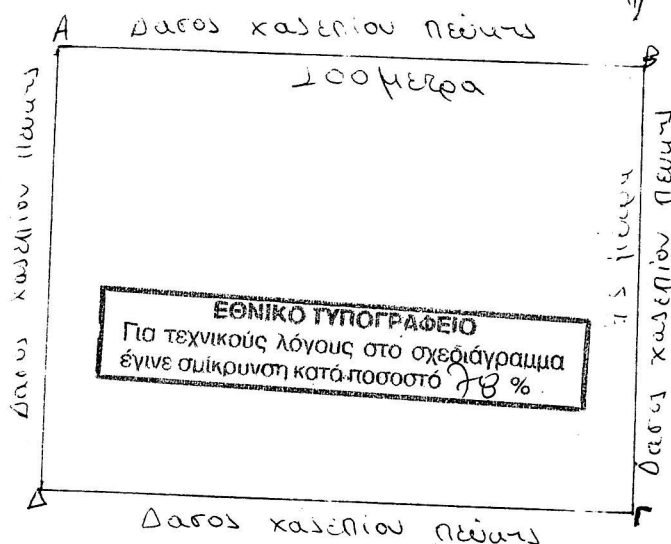 Α Δασος χαλεπίου πεύκης Β
100 μετρα
Δασος χαλεπίου πευκης
Δασος χαλεπίου πευκης
ΕΘΝΙΚΟ ΤΥΠΟΓΡΑΦΕΙΟ
Για τεχνικούς λόγους στο σχεδιάγραμμα
έγινε σμίκρυνση κατά ποσοστό 78 %
Δ Γ
Δασος χαλεπίου πεύκης